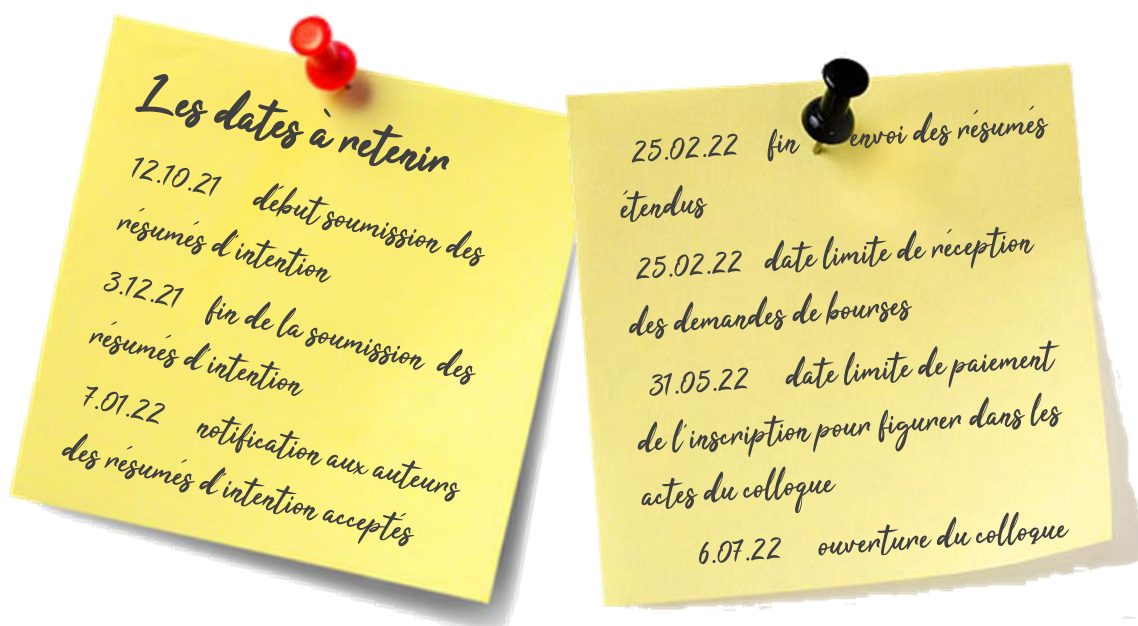 Les dates à retenir
12.10.21 début soumission des
résumés d'intention
3.12.21 fin de la soumission des
résumés d'intention
7.01.22 notification aux auteurs
des résumés d'intention acceptés
25.02.22 fin envoi des résumés
étendus
25.02.22 date limite de réception
des demandes de bourses
31.05.22 date limite de paiement
de l'inscription pour figurer dans les
actes du colloque
6.07.22 ouverture du colloque